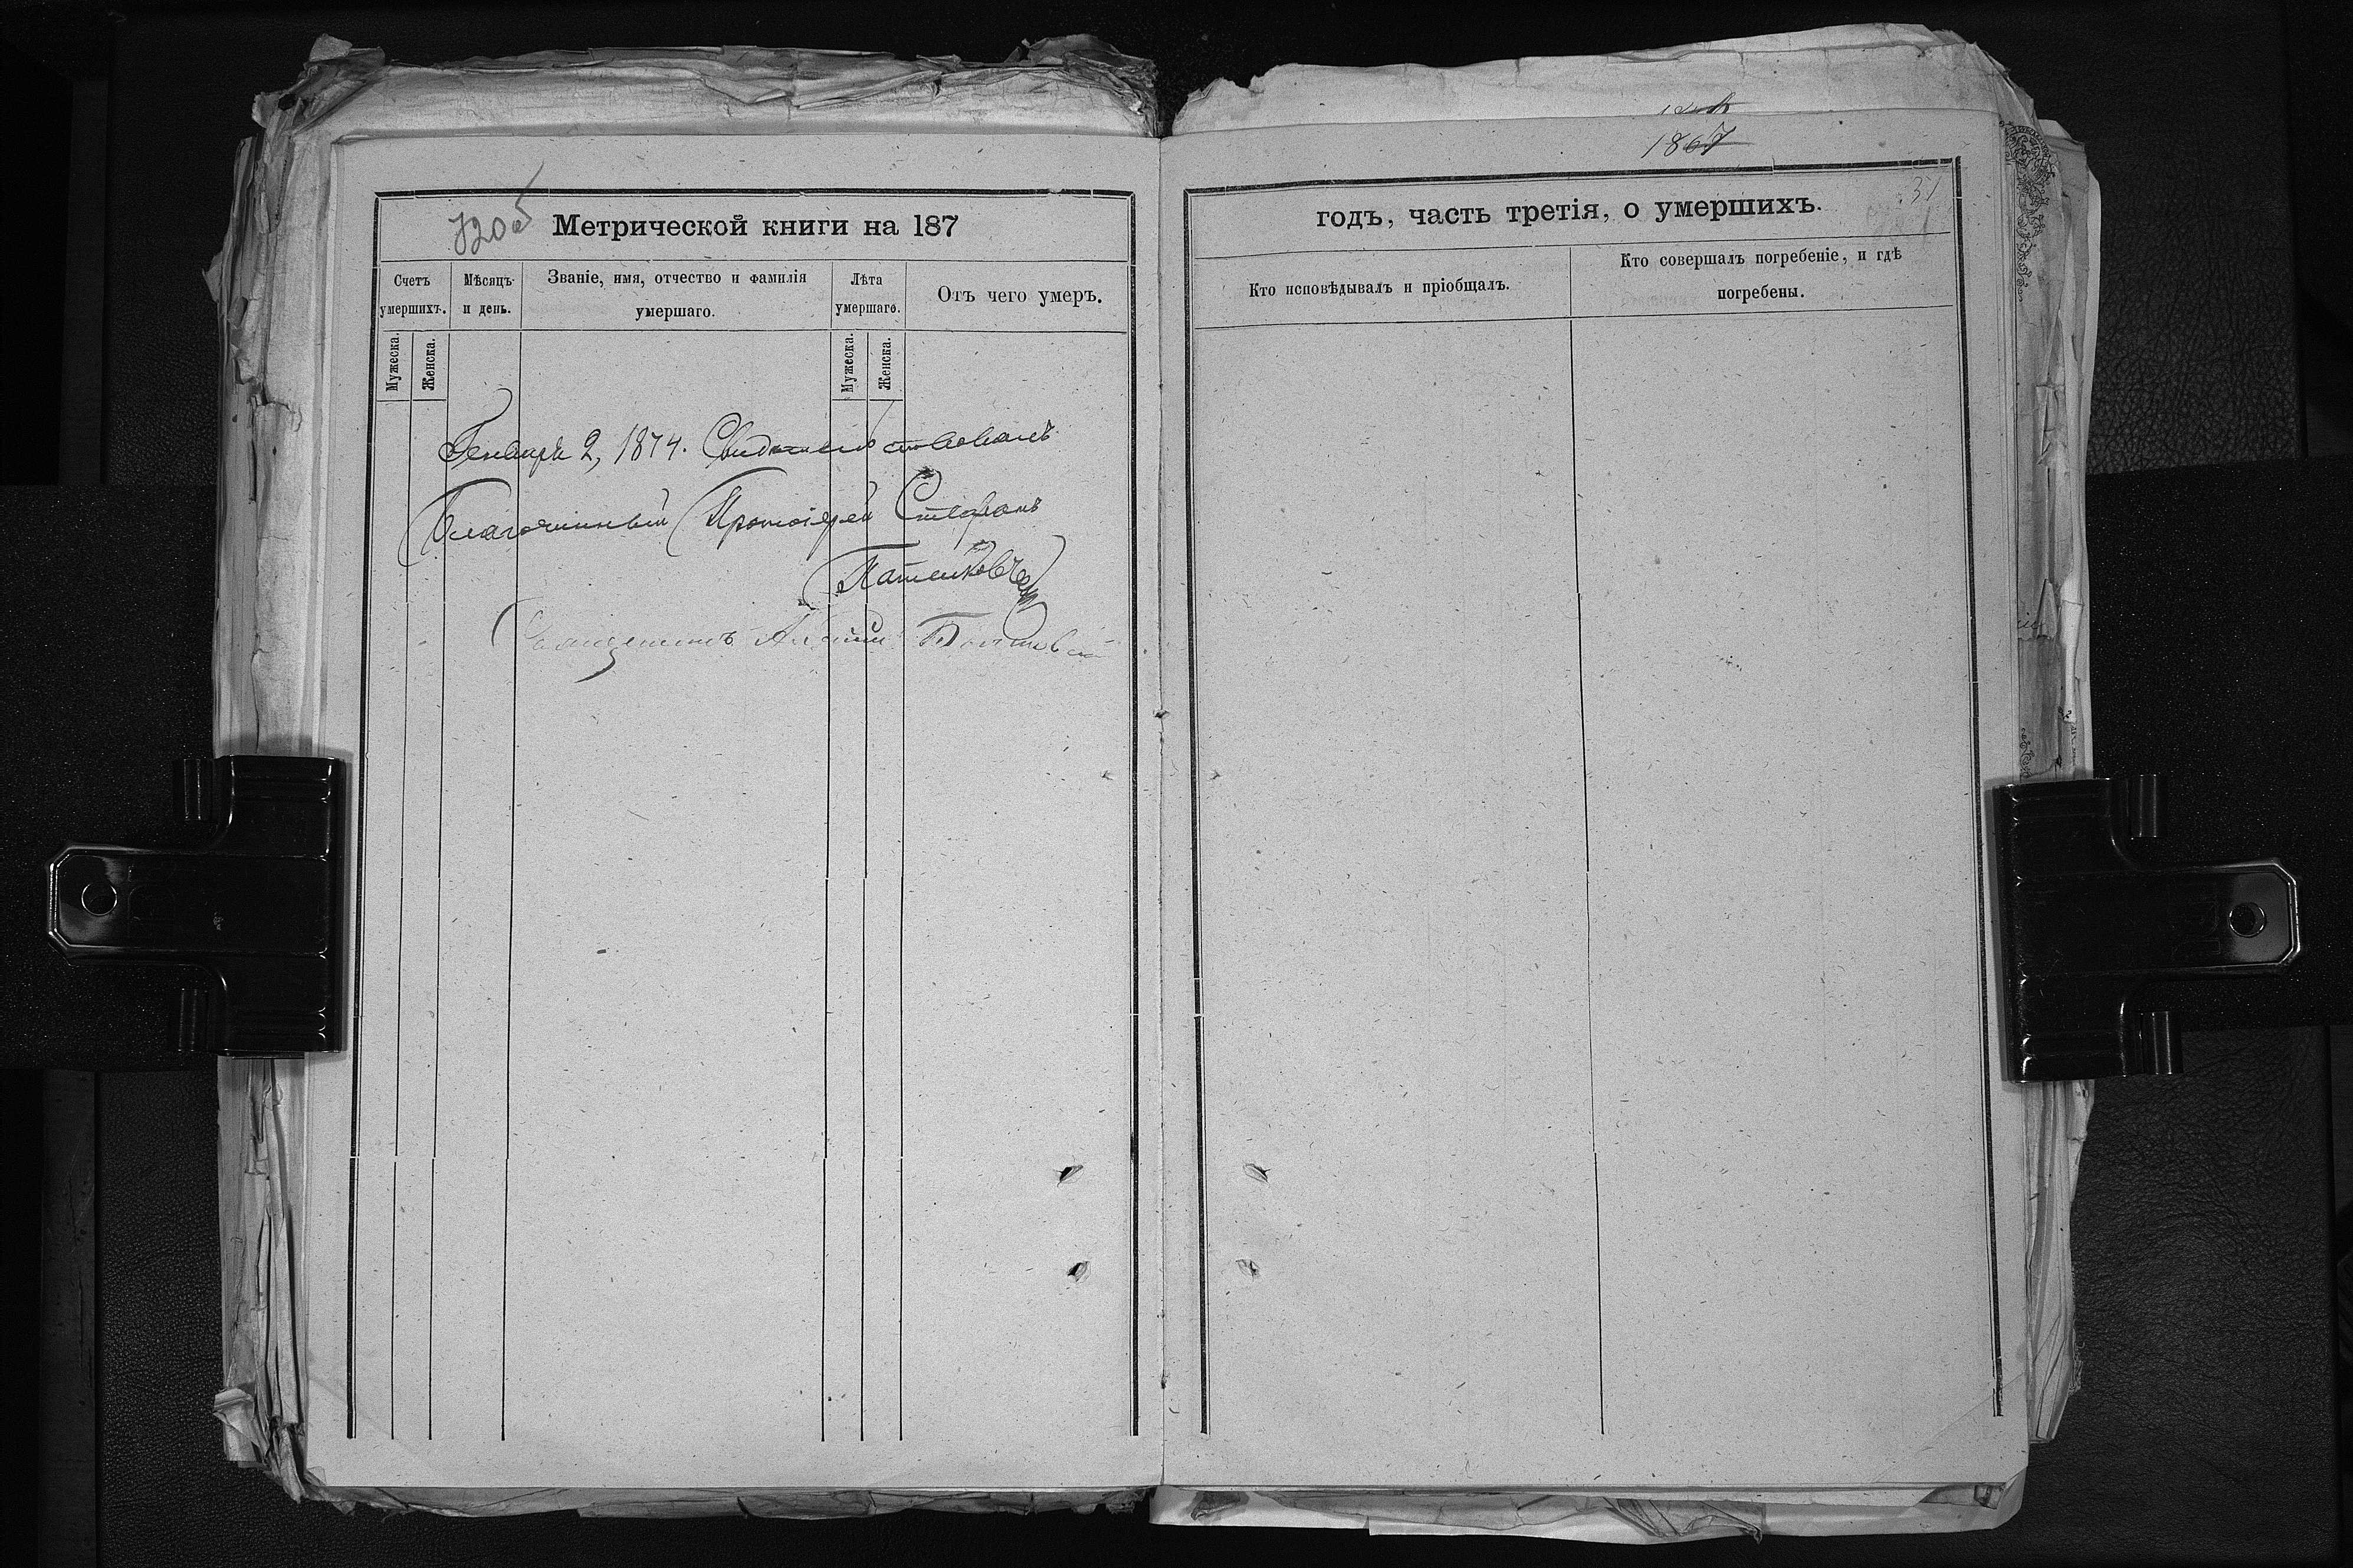 1867
720б Метрической книги на 187
Счетъ умершихъ.
Мѣсяцъ и день.
Званіе, имя, отчество и фамилія умершаго.
Лѣта умершаго.
Отъ чего умеръ.
Мужеска.
Женска.
Мужеска.
Женска.
Генваря 2, 1874. Свидѣтельствовалъ
Благочинный Протоіерей Стефанъ
Священникъ
годъ, часть третія, о умершихъ.
31
Кто исповѣдывалъ и пріобщалъ.
Кто совершалъ погребеніе, и гдѣ
погребены.